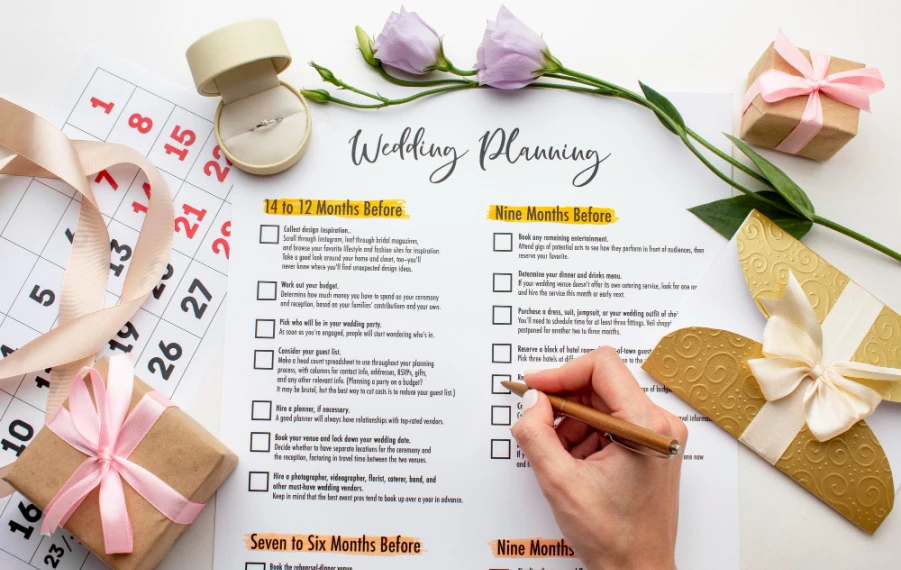 Wedding Planning
14 to 12 Months Before
Collect design inspiration.
Scroll through Instagram, leaf through bridal magazines,
and browse your favorite lifestyle and fashion sites for inspiration.
Take a good look around your home and closet, too—you'll
never know where you'll find unexpected design ideas.
Work out your budget.
Determine how much money you have to spend on your ceremony
and reception, based on your families' contributions and your own.
Pick who will be in your wedding party.
As soon as you're engaged, people will start wondering who's in.
Consider your guest list.
Make a head count spreadsheet to use throughout your planning
process, with columns for contact info, addresses, RSVPs, gifts,
and any other relevant info. (Planning a party on a budget?
It may be brutal, but the best way to cut costs is to reduce your guest list.)
Hire a planner, if necessary.
A good planner will always have relationships with top-rated vendors.
Book your venue and lock down your wedding date.
Decide whether to have separate locations for the ceremony and
the reception, factoring in travel time between the two venues.
Hire a photographer, videographer, florist, caterer, band, and
other must-have wedding vendors.
Keep in mind that the best event pros tend to book up over a year in advance.
Seven to Six Months Before
Book the rehearsal-dinner venue.
Nine Months Before
Book any remaining entertainment.
Attend gigs of potential acts to see how they perform in front of audiences, then
reserve your favorite.
Determine your dinner and drinks menu.
If your wedding venue doesn't offer its own catering service, look for one
and hire the service this month or early next.
Purchase a dress, suit, jumpsuit, or your wedding outfit of
You'll need to schedule time for at least three fittings. Veil
postponed for another two to three months.
Reserve a block of hotel guests.
Pick three hotels at
of budget
informati
now
and
Nine Months
1
8
15
22
7
14
21
28
6
13
20
27
5
19
26
10
16
23/